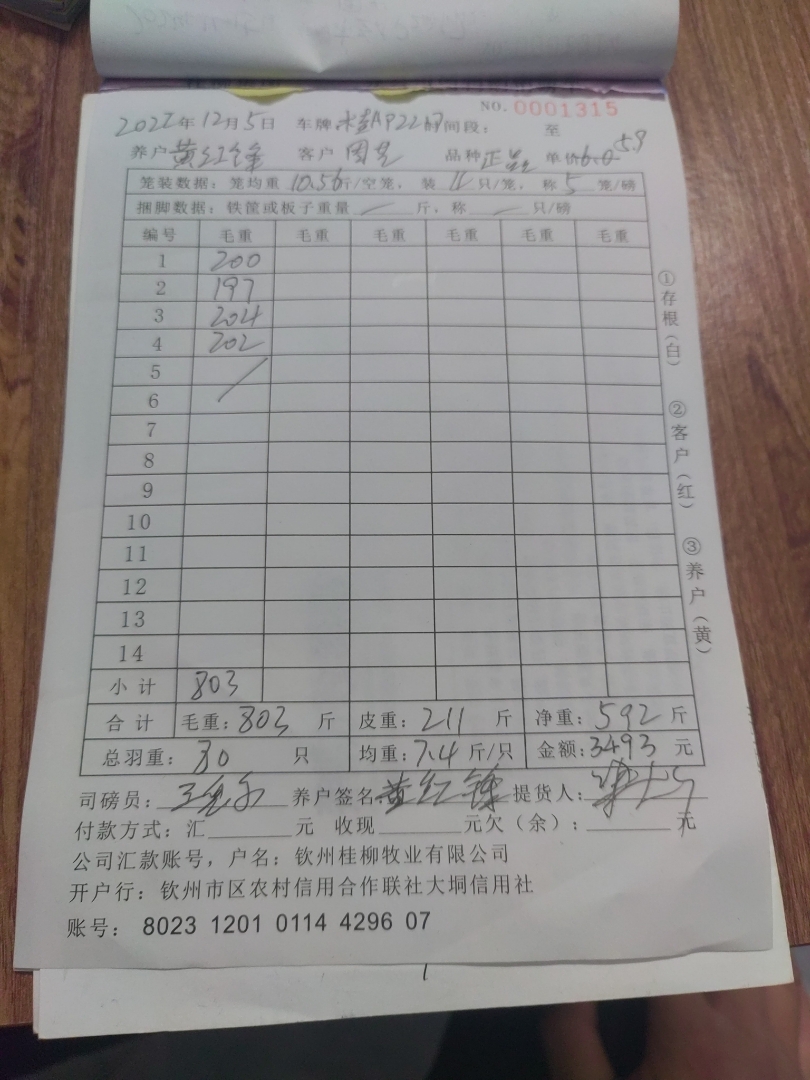 NO. 0001315
2022年12月5日 车牌 AP22 时间段： 至
养户黄红锋 客户 品种正 单价6.0 5.9
笼装数据：笼均重10.56斤/空笼，装11只/笼，称5笼/磅
捆脚数据：铁筐或板子重量 / 斤，称 / 只/磅
编号 毛重 毛重 毛重 毛重 毛重 毛重
1 200
2 197
3 204
4 202
5
6
7
8
9
10
11
12
13
14
小计 803
合计 毛重：803斤 皮重：211斤 净重：592斤
总羽重：80只 均重：7.4斤/只 金额：3493元
司磅员： 养户签名：黄红锋 提货人：
付款方式：汇 元 收现 元欠（余）： 元
公司汇款账号，户名：钦州桂柳牧业有限公司
开户行：钦州市区农村信用合作联社大垌信用社
账号：8023 1201 0114 4296 07
①存根（白）
②客户（红）
③养户（黄）